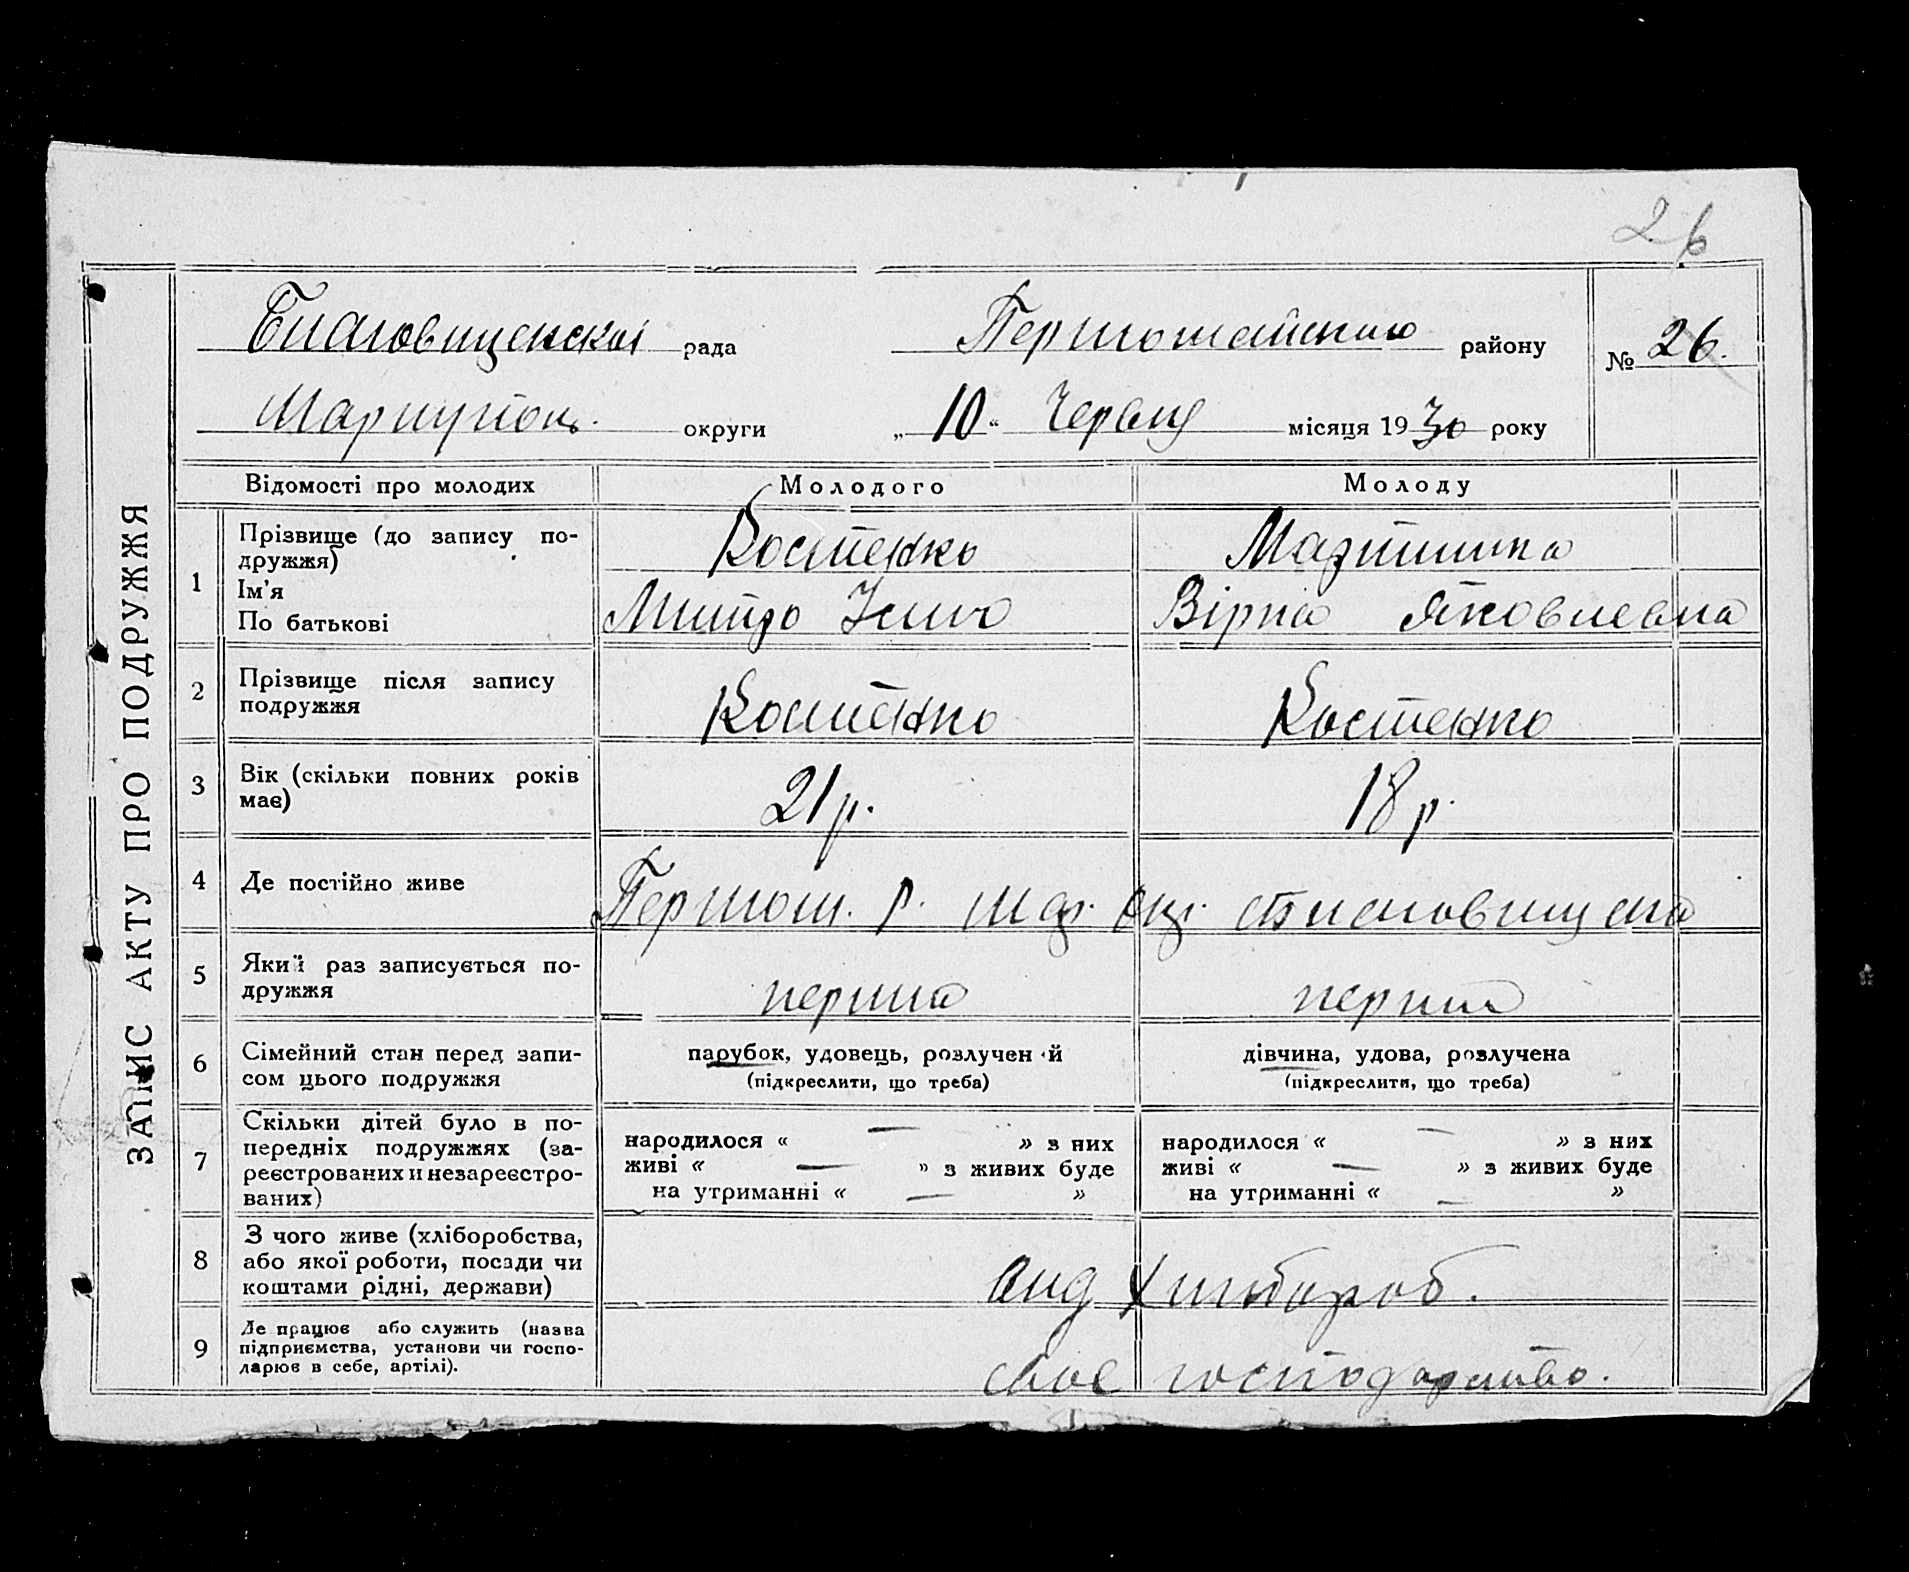 26
ЗАПИС АКТУ ПРО ПОДРУЖЖЯ
Благовіщенская рада Першомайського району № 26.
Маріупіль. округи „10“ Червня місяця 1930 року
Відомості про молодих Молодого Молоду
1 Прізвище (до запису по-
дружжя)
Ім'я
По батькові
Костенко
Митро
Вірка Яковлевна
2 Прізвище після запису
подружжя
Костенко Костенко
3 Вік (скільки повних років
має)
21 р. 18 р.
4 Де постійно живе
Першом. р.
5 Який раз записується по-
дружжя
перша перша
6 Сімейний стан перед запи-
сом цього подружжя
парубок, удовець, розлучен й
(підкреслити, що треба)
дівчина, удова, розлучена
(підкреслити, що треба)
7 Скільки дітей було в по-
передніх подружжях (за-
реєстрованих и незареєстро-
ваних)
народилося « — » з них
живі « — » з живих буде
на утриманні « — »
народилося « — » з них
живі « — » з живих буде
на утриманні « — »
8 З чого живе (хліборобства,
або якої роботи, посади чи
коштами рідні, держави)
Хлібороб.
9 Де працює або служить (назва
підприємства, установи чи госпо-
дарює в себе, артілі).
своє господарство.